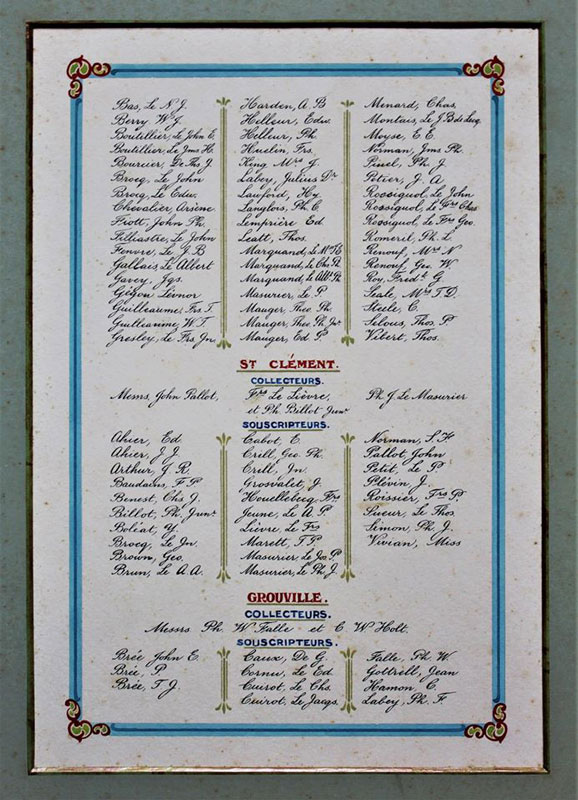 Bas, Le N J.
Berry W J.
Boutillier, Le John E.
Boutillier, Le Jms H.
Bourcier, De Ths J.
Brocq, Le John
Brocq, Le Edw.
Chevalier, Arsène
Fiott, John Ph.
Filliastre, Le John
Fenvre, Le J. B
Gallais Le Albert
Gavey, Jas.
Gigon Léonor
Guilleaume, Frs T.
Guilleaume, W. T.
Gresley, de Frs, Jn.
Harden, A B
Helleur, Edw.
Helleur, Ph.
Huelin, Frs.
King Mrs J.
Labey, Julius Dr
Lawford, Hy
Langlois, Ph C
Lemprière Ed
Leatt, Thos.
Marquand, Le
Marquand, Le Chs Ph.
Marquand, Le Ph.
Masurier, Le P.
Mauger, Theo Ph.
Mauger, Theo. Ph. Jnr.
Mauger, Ed P.
Menard, Chas.
Montais, Le J.B de Lecq
Moyse, E E.
Norman, Jms Ph.
Pinel, Ph. J
Potier, J. A
Rossignol, Le John
Rossignol, Le Chas
Rossignol, Le Frs Geo.
Romeril, Ph. L
Renouf, Mrs N
Renouf, Geo. W.
Roy, Fredk G.
Seale, Mrs T D.
Steele, C.
Selous, Thos. P.
Vibert, Thos.
ST CLÉMENT.
COLLECTEURS.
Messrs, John Pallot, Frs Le Lièvre, Ph J. Le Masurier
et Ph. Billot Junr
SOUSCRIPTEURS.
Ahier, Ed
Ahier, J. J.
Arthur, J R.
Baudains, F P
Benest, Chs J.
Billot, Ph. Junr.
Boléat, Y.
Brocq, Le Jn.
Brown, Geo.
Brun, Le A A.
Cabot, E.
Crill, Geo. Ph.
Crill, Jn.
Grosvalet, J
Houellebecq, Frs
Jeune, Le A. P
Lièvre, Le Frs
Marett, T P
Masurier Le Jos. P
Masurier, Le Ph. J.
Norman, S. F
Pallot, John
Petit, Le P
Plévin, J.
Poissier, Frs P.
Sueur, Le Thos.
Simon, Ph. J.
Vivian, Miss
GROUVILLE.
COLLECTEURS.
Messrs Ph. W Falle et C W Holt.
SOUSCRIPTEURS.
Brée John E.
Brée, P
Brée, T J.
Caux, De G.
Cornu, Le Ed.
Cuirot, Le Chs.
Cuirot, Le Jacqs.
Falle, Ph. W.
Gottrell, Jean
Hamon, C.
Labey, Ph. F.